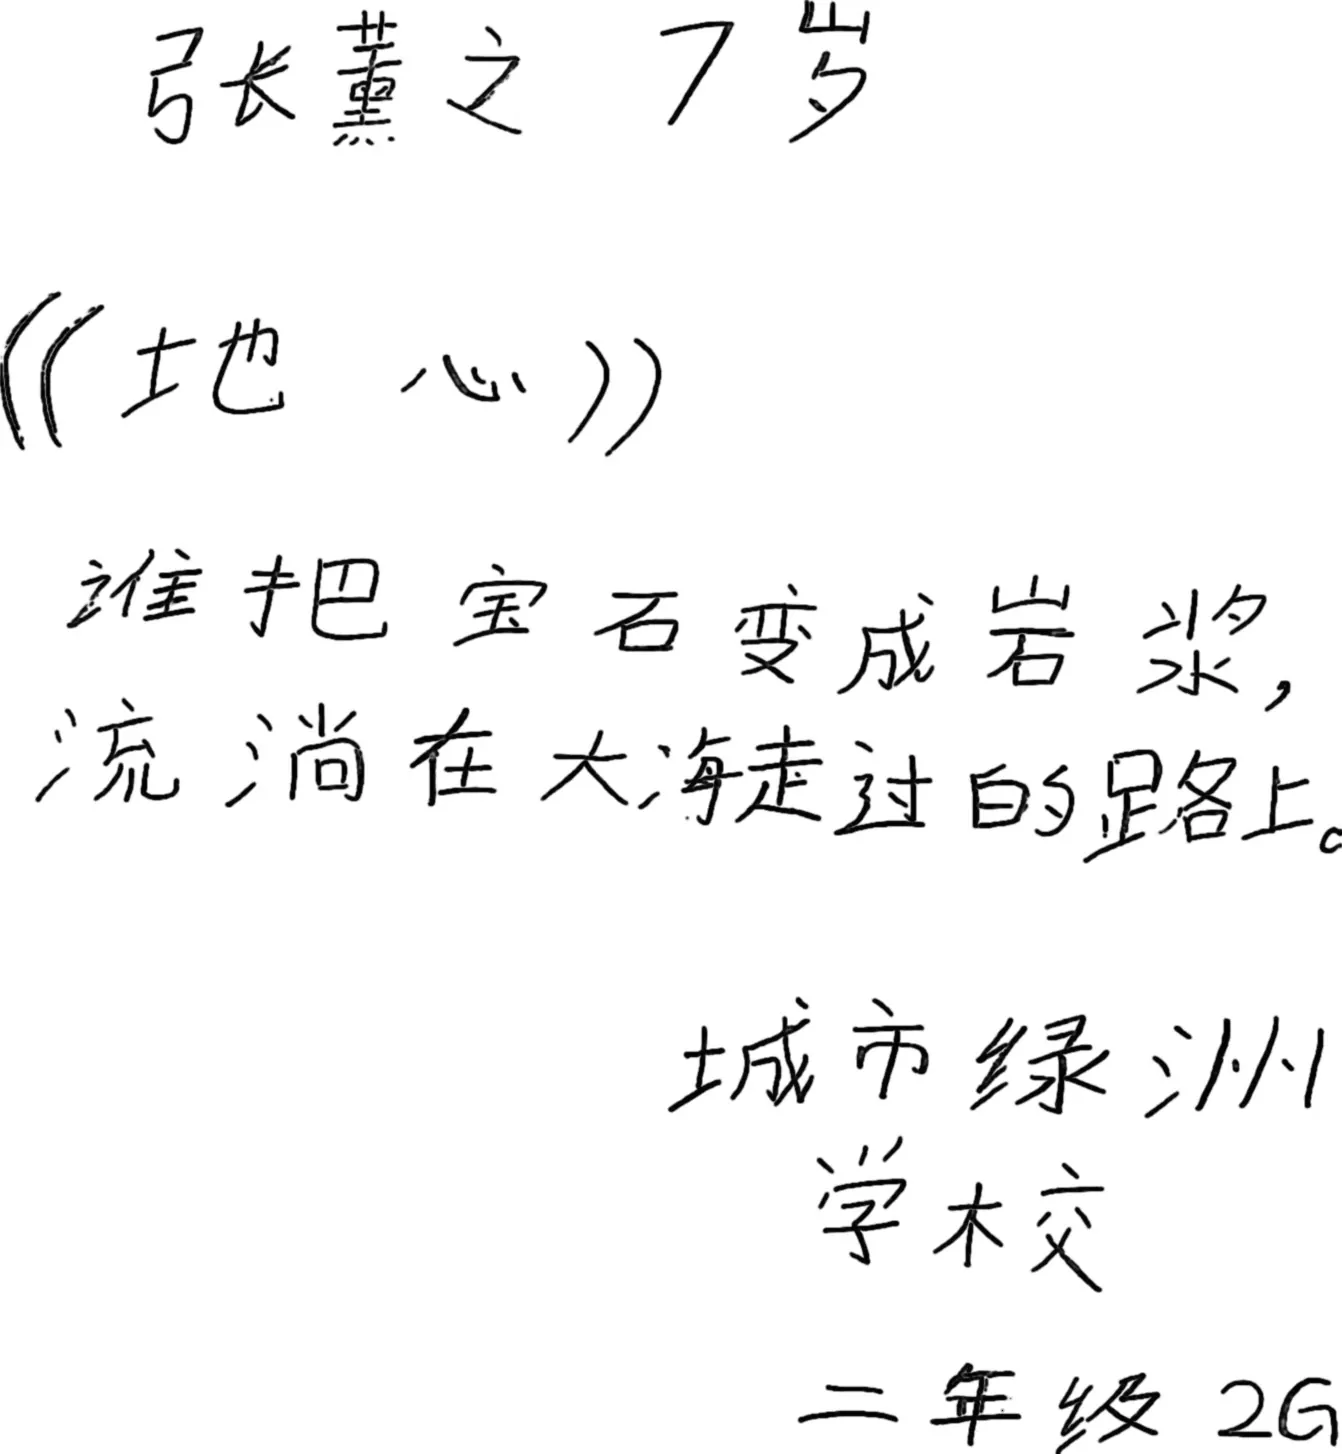 张薰之 7岁
《地心》
谁把宝石变成岩浆,
流淌在大海走过的路上。
城市绿洲
学校
二年级 2G